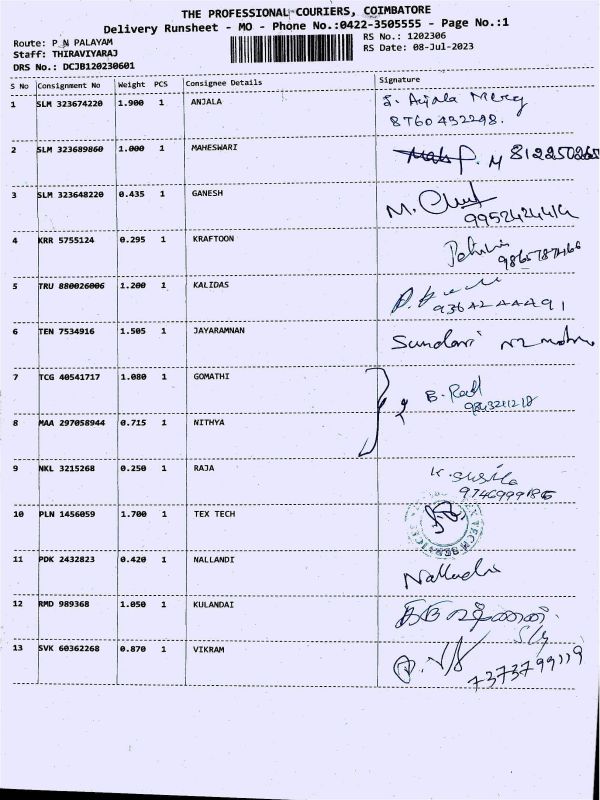 THE PROFESSIONAL COURIERS, COIMBATORE
Delivery Runsheet - MO - Phone No.:0422-3505555 - Page No.:1
Route: P N PALAYAM
RS No.: 1202306
Staff: THIRAVIYARAJ
RS Date: 08-Jul-2023
DRS No.: DCJB120230601
S No Consignment No Weight PCS Consignee Details Signature
1 SLM 323674220 1.900 1 ANJALA
8760432298.
2 SLM 323689860 1.000 1 MAHESWARI
3 SLM 323648220 0.435 1 GANESH
4 KRR 5755124 0.295 1 KRAFTOON
5 TRU 880026006 1.200 1 KALIDAS
6 TEN 7534916 1.505 1 JAYARAMNAN
7 TCG 40541717 1.080 1 GOMATHI
8 MAA 297058944 0.715 1 NITHYA
9 NKL 3215268 0.250 1 RAJA
K. Susila
10 PLN 1456059 1.700 1 TEX TECH
11 PDK 2432823 0.420 1 NALLANDI
12 RMD 989368 1.050 1 KULANDAI
13 SVK 60362268 0.870 1 VIKRAM
7373799119